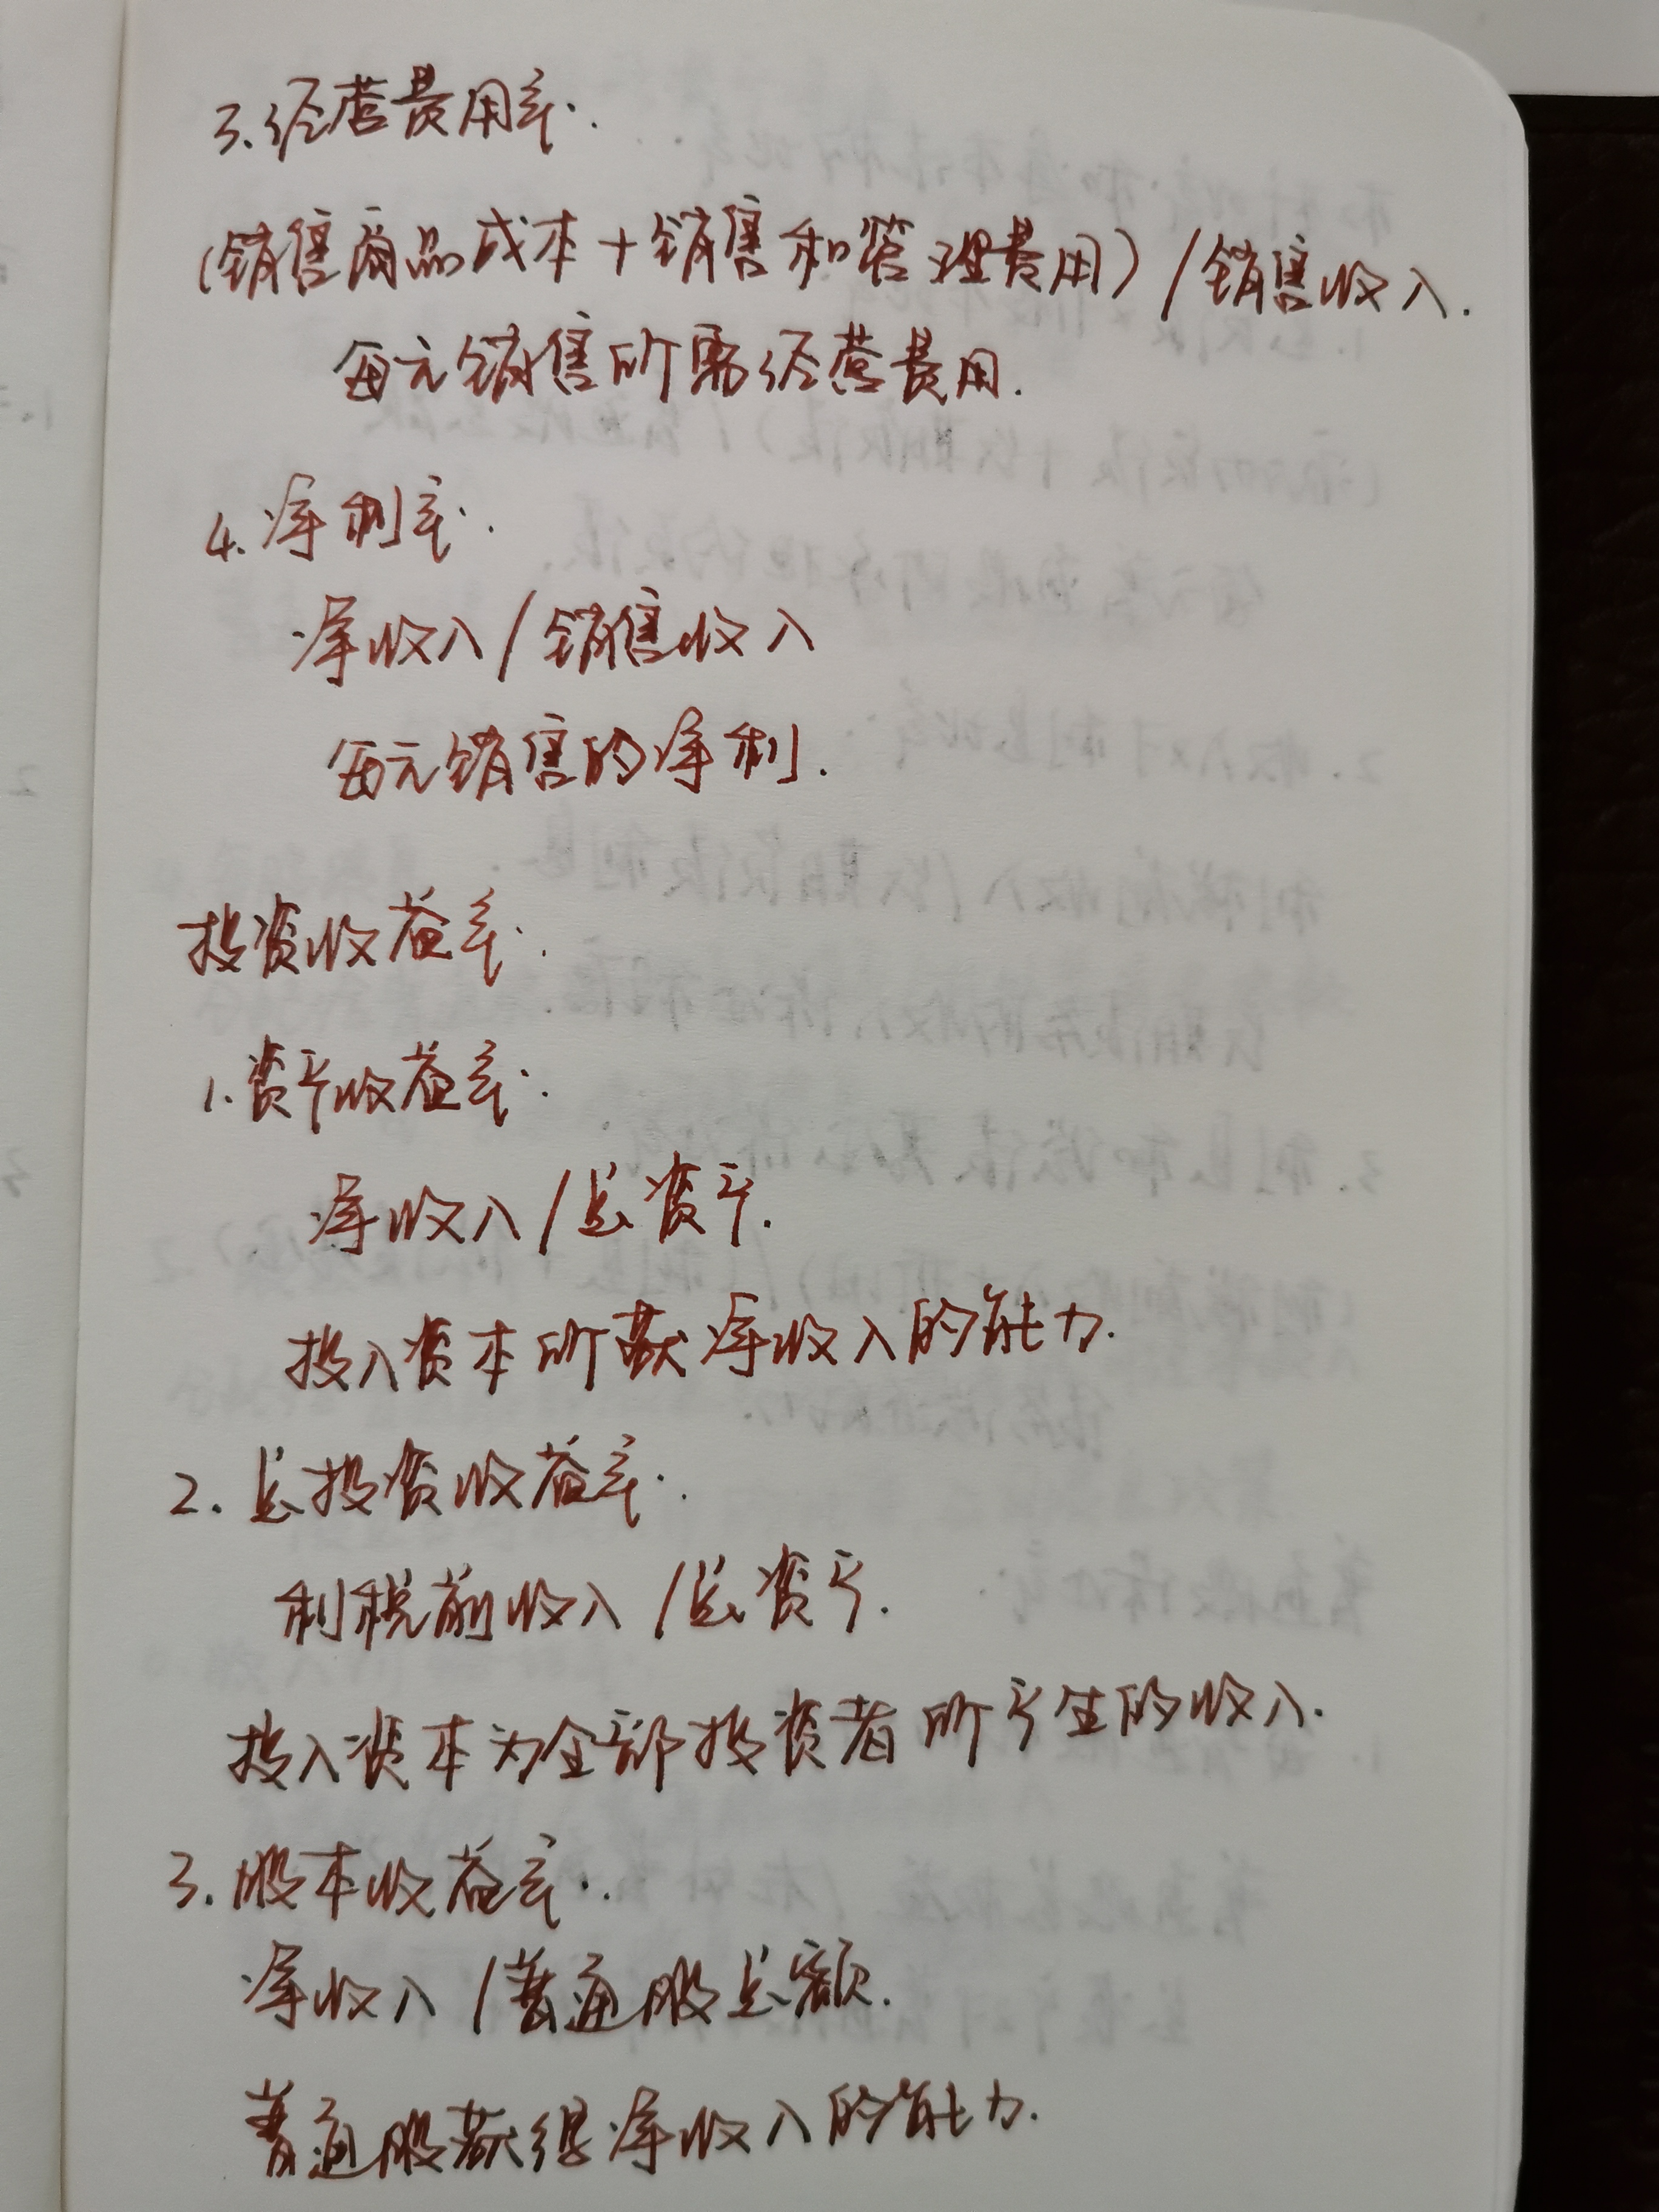 3. 经营费用率:
(销售商品成本+销售和管理费用)/销售收入.
每元销售所需经营费用.
4. 净利率:
净收入/销售收入
每元销售的净利.
投资收益率:
1. 资产收益率:
净收入/总资产.
投入资本所获净收入的能力.
2. 总投资收益率:
利税前收入/总资产.
投入资本为全部投资者所产生的收入.
3. 股本收益率:
净收入/普通股总额.
普通股获得净收入的能力.